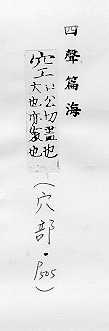 四聲篇海
空苦公切盡也
大也亦虛也
(穴部·P505)